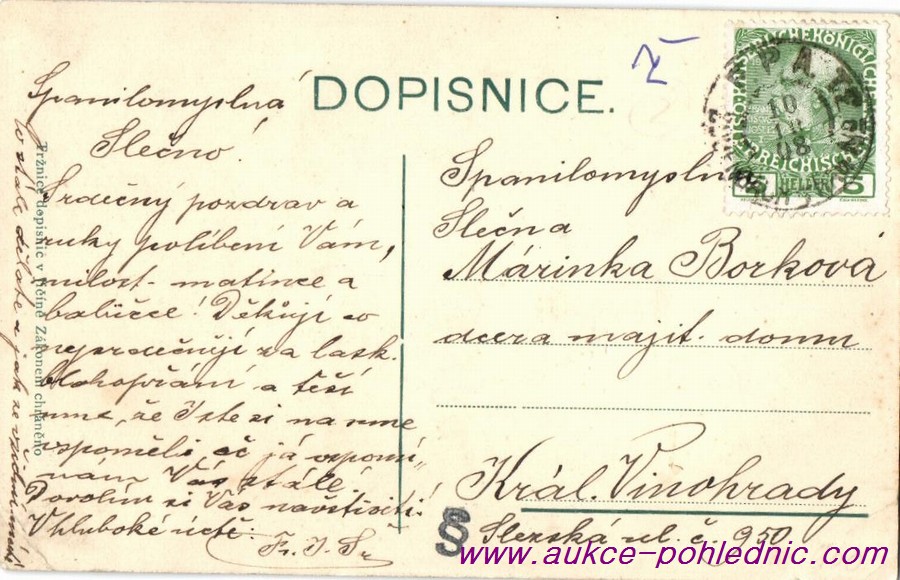 DOPISNICE.
Spanilomyslná
Slečno!
Srdečný pozdrav a
ruky políbení Vám,
milost. matince a
babičce! Děkuji co
nejsrdečněji za lask.
blahopřání a těší
mne, že Jste si na mne
vzpoměli ač já vzpomí-
nám Vás stále
Dovolím si Vás navštíviti.
V hluboké úctě.
Fr. J.
Tržnice dopisnic v Jičíně Zákonem chráněno
Spanilomyslná
Slečna
Márinka Borková
dcera majit. domu
Král. Vinohrady
Slezská ul. č. 950
HELLER
5
10
08
§
www.aukce-pohlednic.com